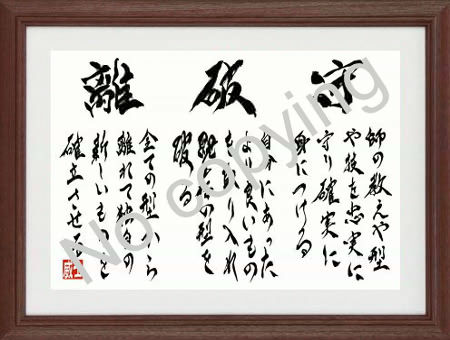 守
師の教えや型
や技を忠実に
守り確実に
身につける
破
自身にあった
より良いもの
もとり入れ
既存の型を
破る
離
全ての型から
離れて独自の
新しいものを
確立させる
No copying